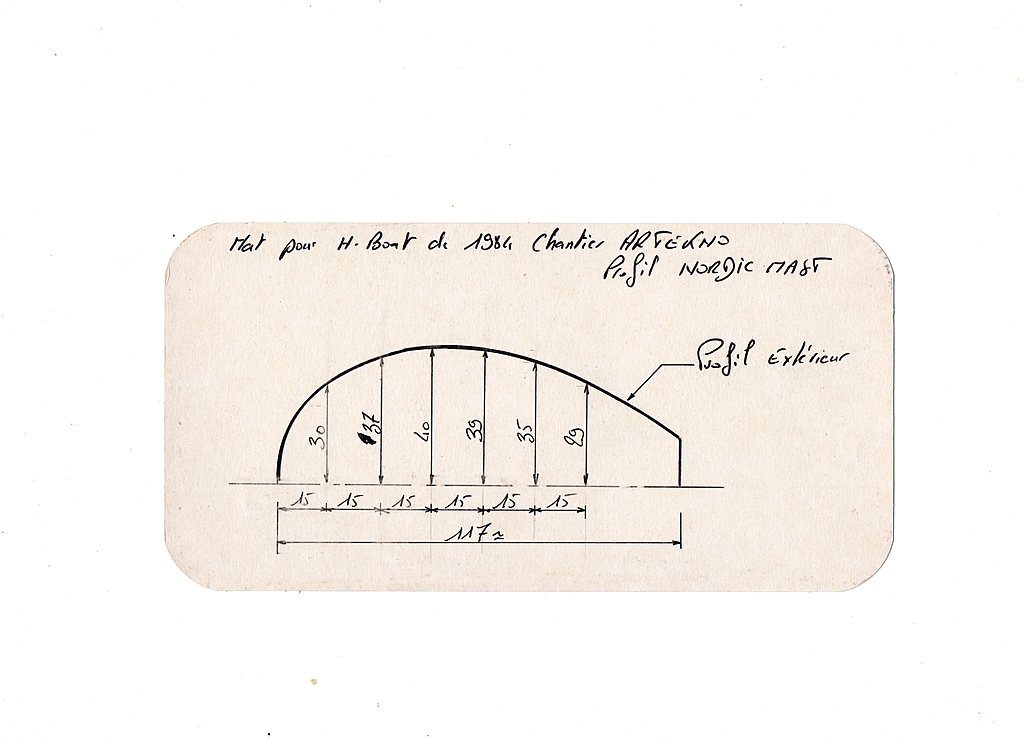 Mat pour H. Boat de 1984 Chantier ARTEKNO
Profil NORDIC MAST
Profil Extérieur
30 37 40 39 35 29
15 15 15 15 15 15
117 ≈